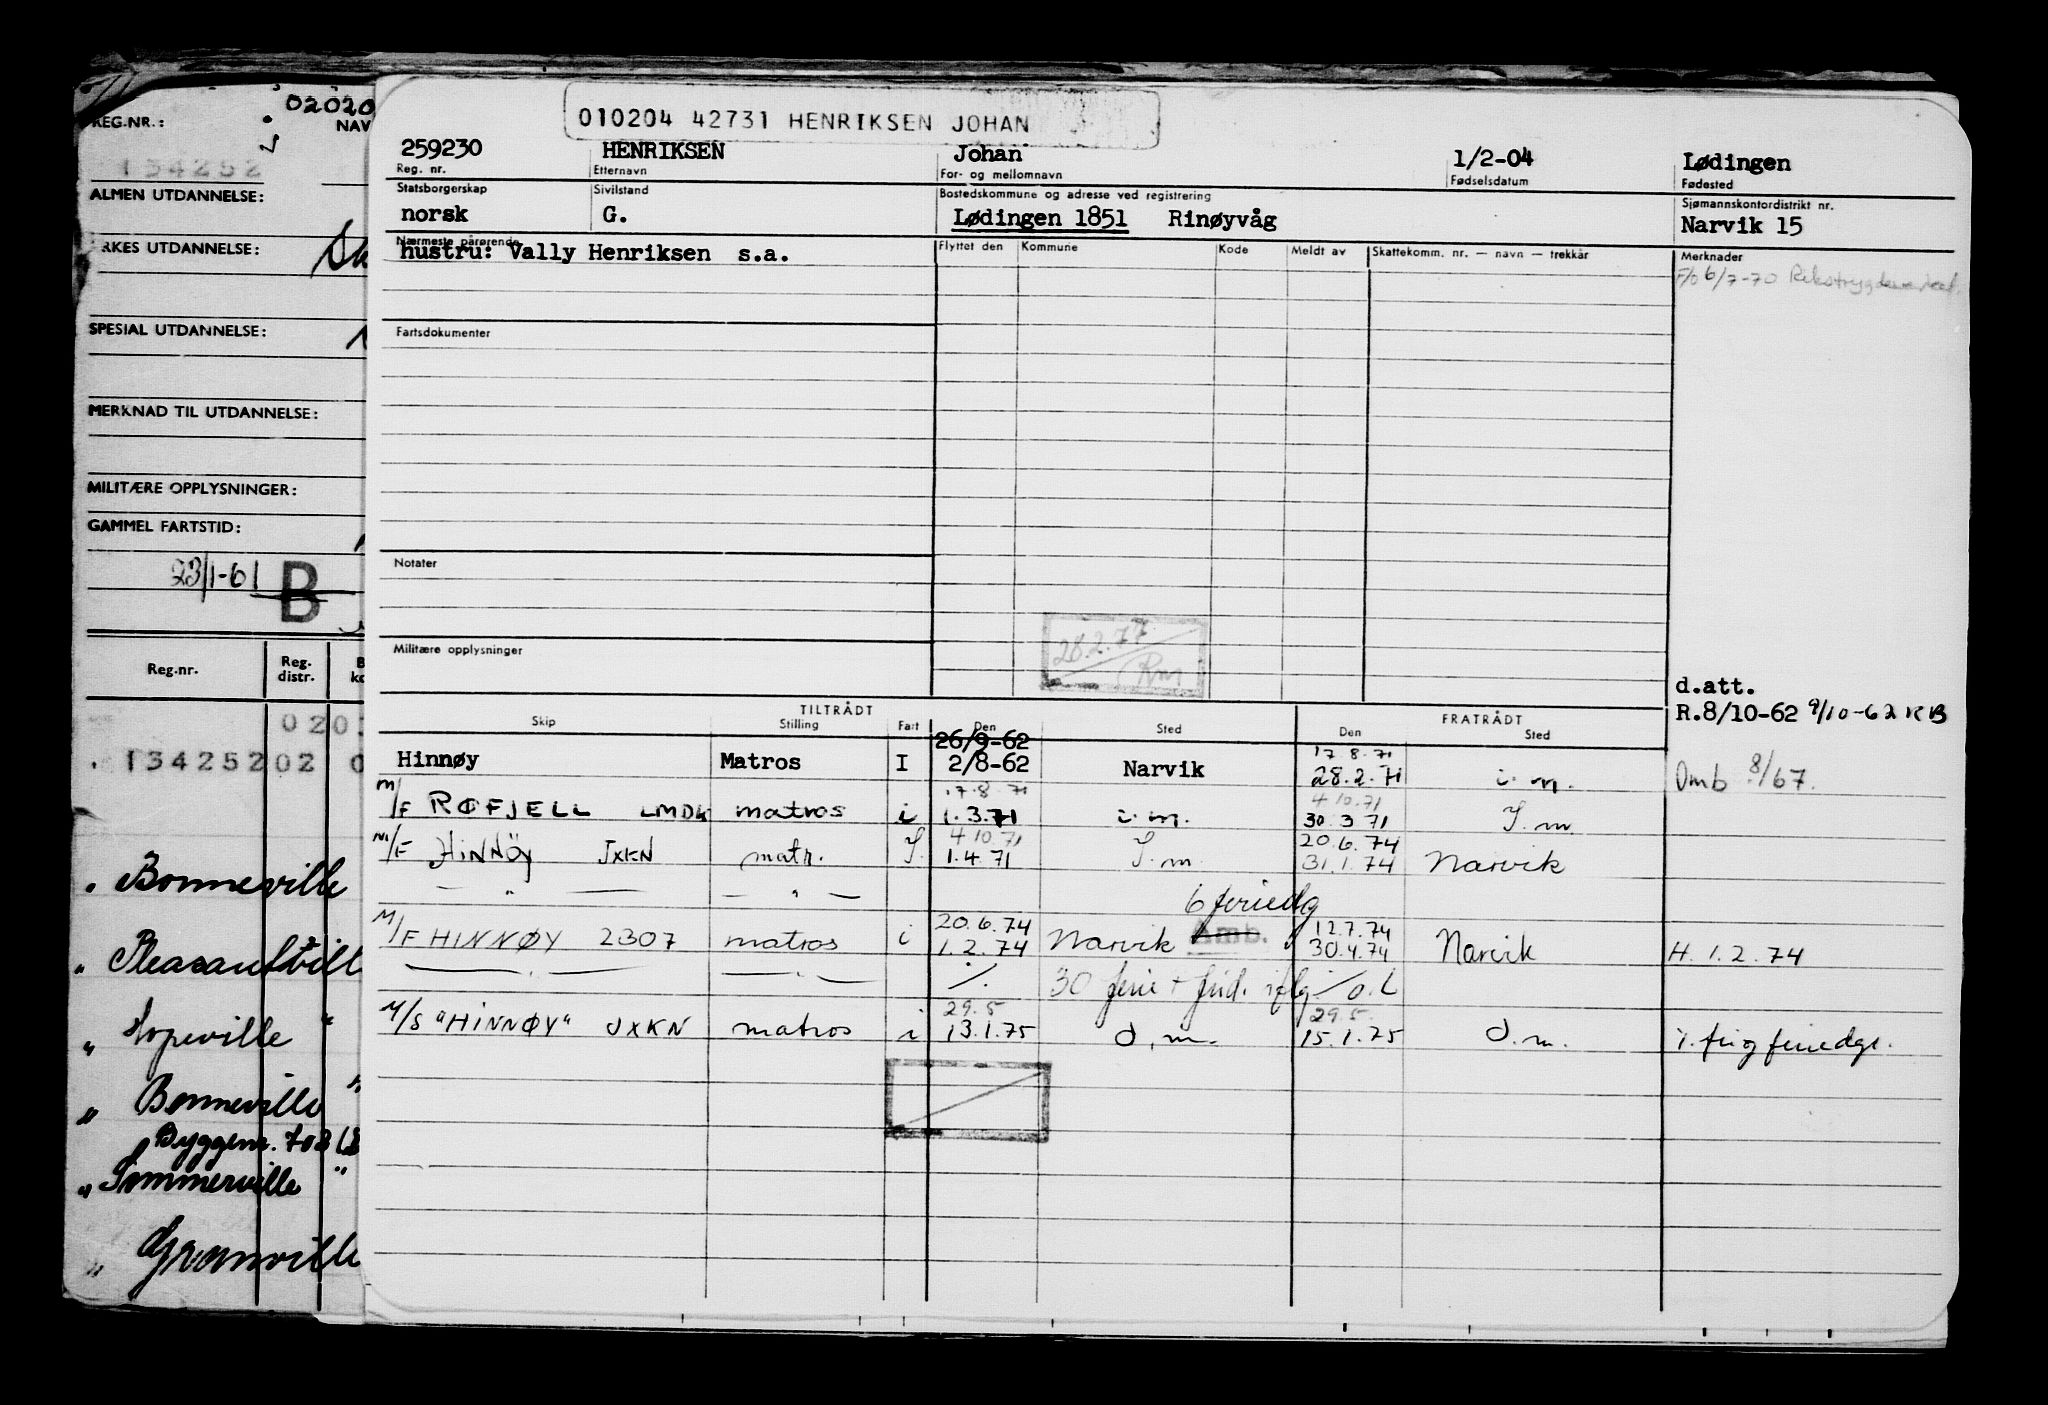 02020
REG.NR.: NAV
134252
ALMEN UTDANNELSE:
RKES UTDANNELSE:
SPESIAL UTDANNELSE:
MERKNAD TIL UTDANNELSE:
MILITÆRE OPPLYSNINGER:
GAMMEL FARTSTID:
23/1-61 B
Reg.nr. Reg. distr. B ko
020
134252 02 0
" Bonneville
" Pleasantvill
" Hopeville "
" Bonneville "
Byggenr. 703
" Sommerville "
" Granville
010204 42731 HENRIKSEN JOHAN
259230 HENRIKSEN Johan 1/2-04 Lødingen
Reg. nr. Etternavn For- og mellomnavn Fødselsdatum Fødested
Statsborgerskap Sivilstand Bostedskommune og adresse ved registrering Sjømannskontordistrikt nr.
norsk G. Lødingen 1851 Rinøyvåg Narvik 15
Nærmeste pårørende Flyttet den Kommune Kode Meldt av Skattekomm. nr. — navn — trekkår Merknader
hustru: Vally Henriksen s.a.
F/o 6/7-70
Fartsdokumenter
Notater
28.2.77
Rm
Militære opplysninger
d.att.
R.8/10-62 9/10-62 KB
TILTRÅDT FRATRÅDT
Skip Stilling Fart Den Sted Den Sted
26/9-62 17.8.71
Hinnøy Matros I 2/8-62 Narvik 28.2.71 i.m. Omb 8/67.
17.8.71 4.10.71
M/F RØFJELL LMDK matros i 1.3.71 i.m. 30.3.71 I.m
4.10.71 20.6.74
M/F HINNÖY JXKN matr. I. 1.4.71 I.m. 31.1.74 Narvik
— " — — " — 6 feriedg
20.6.74 12.7.74
M/F HINNØY 2307 matros i 1.2.74 Narvik Amb. 30.4.74 Narvik H. 1.2.74
— " — — " — ./. 30 ferie + frid.
29.5 29.5.
M/S "HINNØY" JXKN matros i 13.1.75 d.m. 15.1.75 d.m.